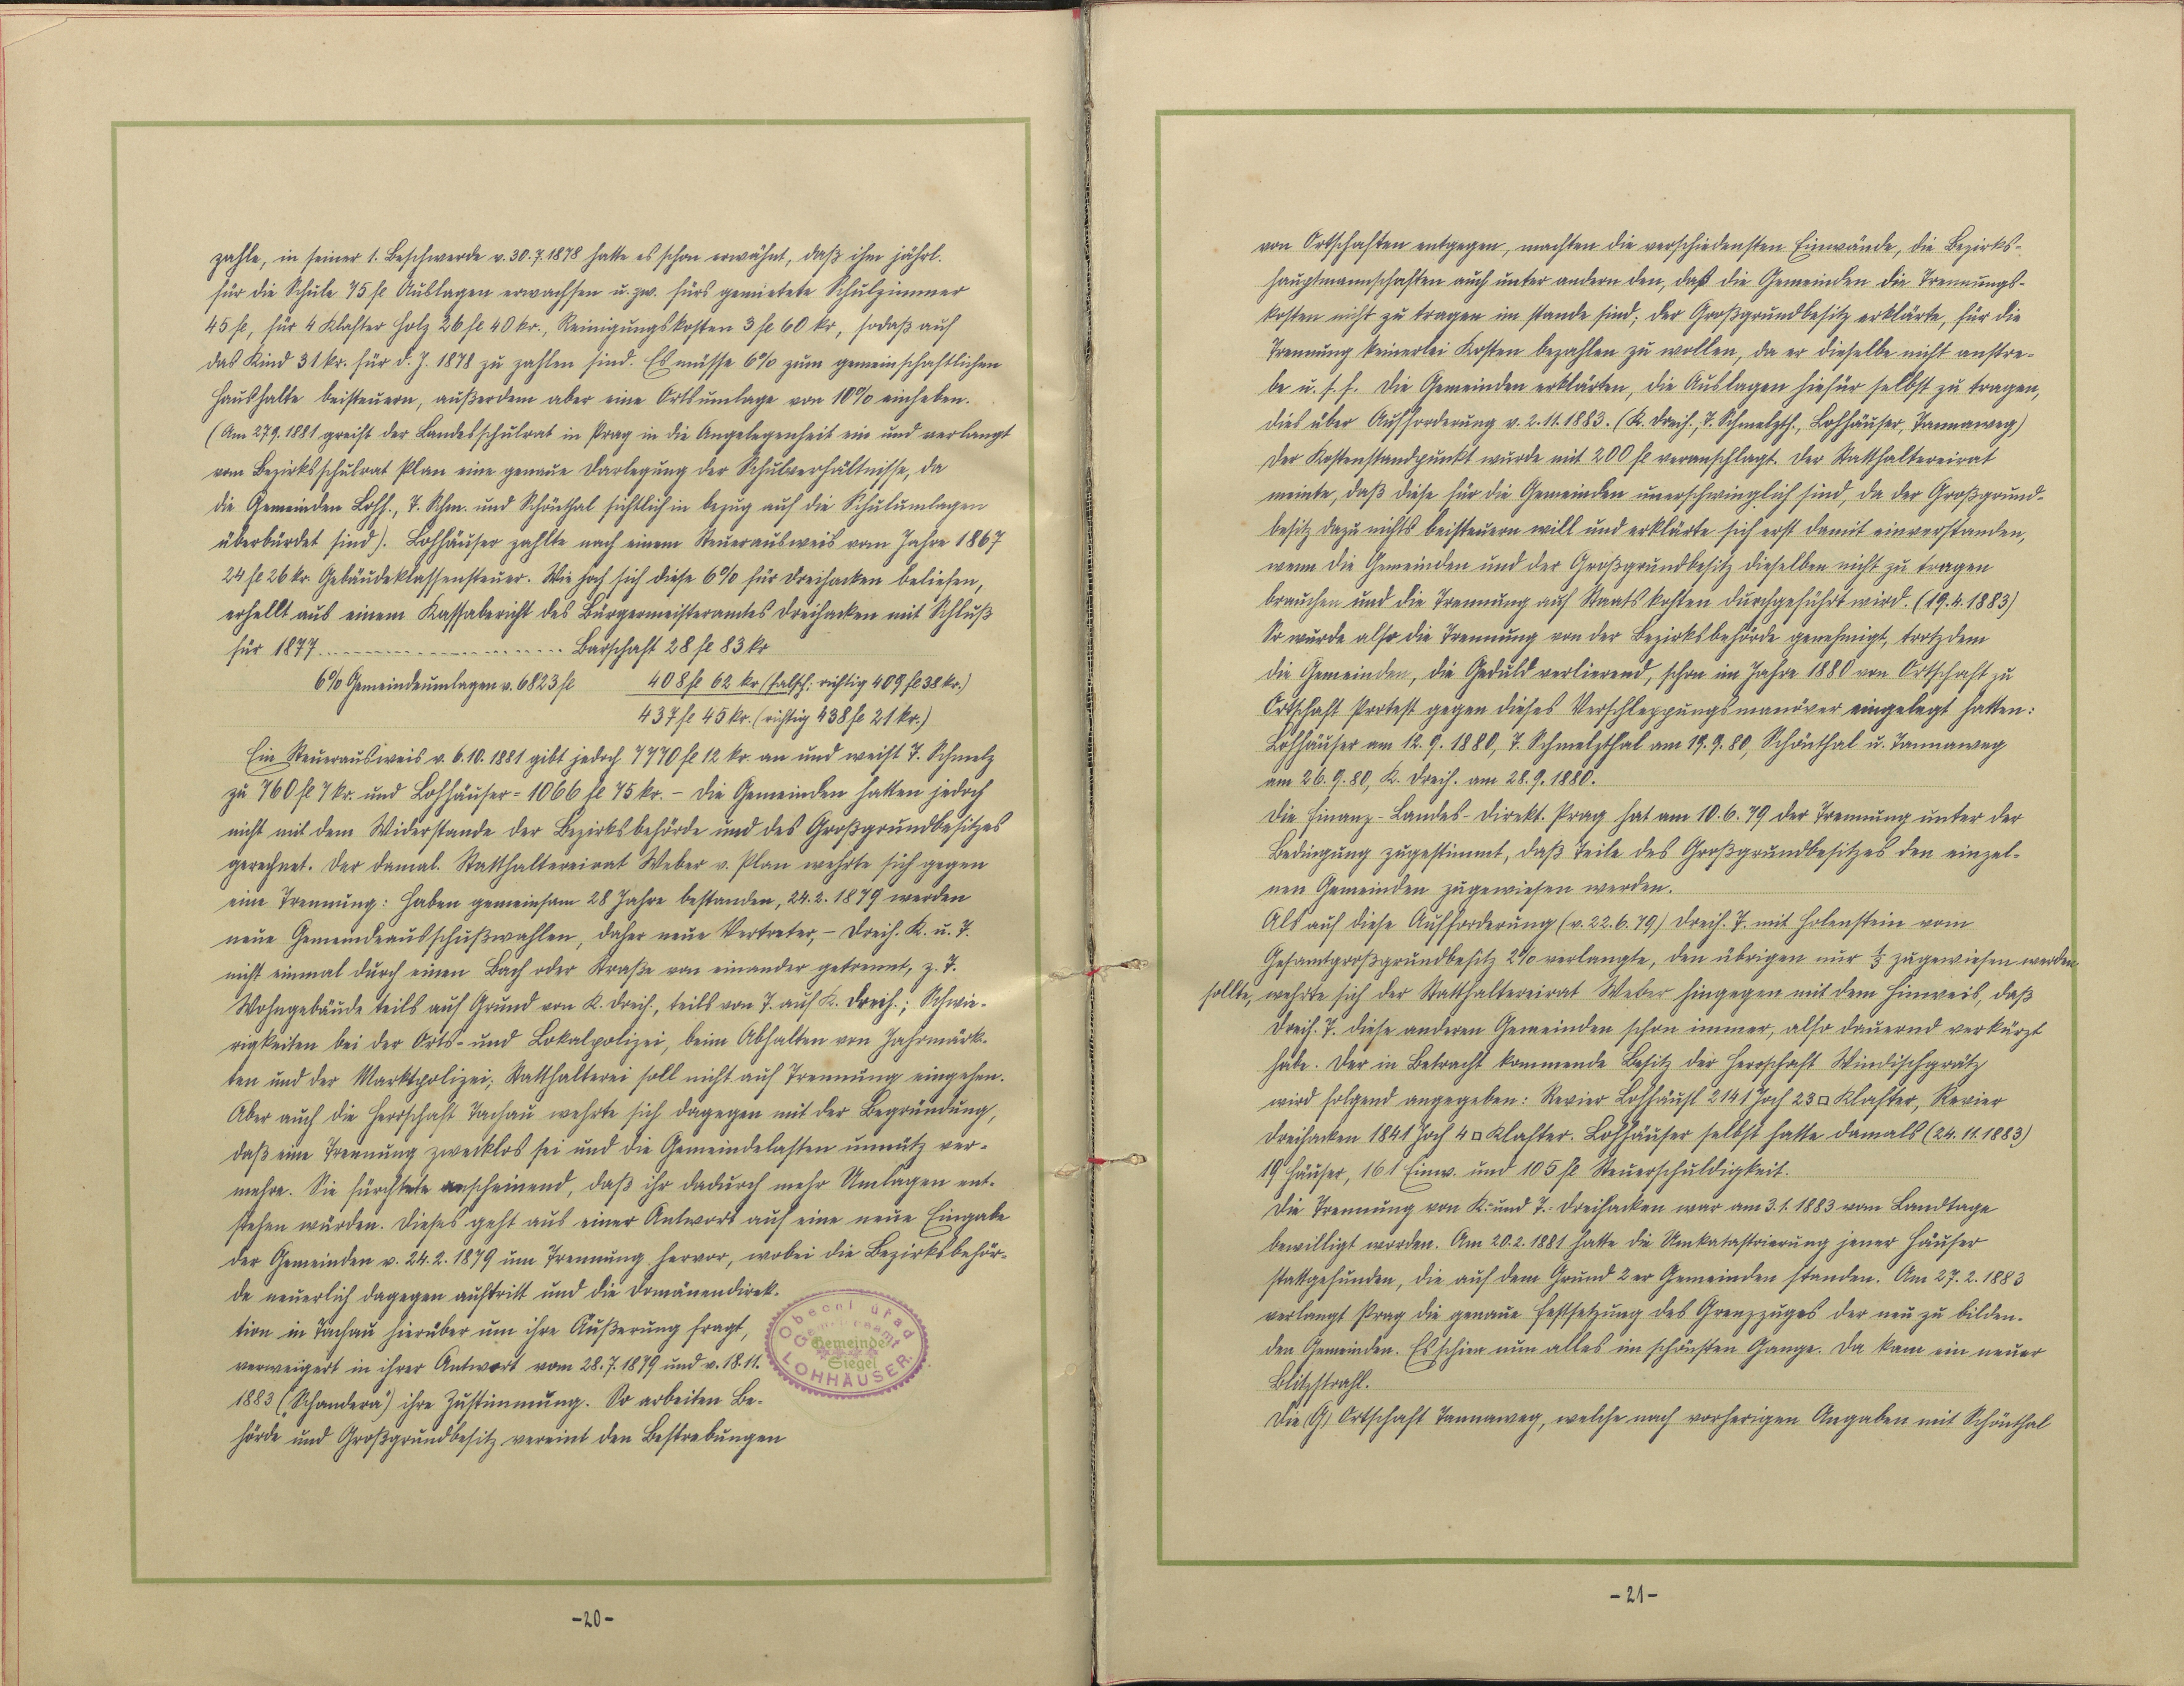 zahle, in seiner 1. Beschwerde v. 30.7.1878 hatte es schon erwähnt, daß ihm jährl.
für die Schule 75 fl Auslagen erwachsen u. zw. fürs gemietete Schulzimmer
45 fl, für 4 Klafter Holz 26 fl 40 kr., Reinigungskosten 3 fl 60 kr, sodaß auf
das Kind 31 kr. für d. J. 1878 zu zahlen sind. Es müsse 6% zum gemeinschaftlichen
Haushalte beisteuern, außerdem aber eine Ortsumlage von 10% einheben.
(Am 27.9.1881 greift der Landesschulrat in Prag in die Angelegenheit ein und verlangt
vom Bezirksschulrat Plan eine genaue Darlegung der Schulverhältnisse, da
die Gemeinden Lohh., T. Schm. und Schönthal sichtlich in bezug auf die Schulumlagen
überbürdet sind). Lohhäuser zahlte nach einem Steuerausweis vom Jahre 1867
24 fl 26 kr. Gebäudeklassensteuer. Wie hoch sich diese 6% für Dreihacken beliefen,
erhellt aus einem Kassabericht des Bürgermeisteramtes Dreihacken mit Schluß
für 1877 ........................ Barschaft 28 fl 83 kr
6% Gemeindeumlagen v. 6823 fl 408 fl 62 kr (falsch: richtig 409 fl 38 kr.)
437 fl 45 kr. (richtig 438 fl 21 kr.)
Ein Steuerausweis v. 6.10.1881 gibt jedoch 7770 fl 12 kr. an und weist T. Schmelz
zu 760 fl 7 kr. und Lohhäuser = 1066 fl 75 kr. - Die Gemeinden hatten jedoch
nicht mit dem Widerstande der Bezirksbehörde und des Großgrundbesitzes
gerechnet. Der damal. Statthaltereirat Weber v. Plan wehrte sich gegen
eine Trennung: Haben gemeinsam 28 Jahre bestanden, 24.2.1879 werden
neue Gemeindeausschußwahlen, daher neue Vertreter, - Dreih. K. u. T.
nicht einmal durch einen Bach oder Straße von einander getrennt, z. T.
Wohngebäude teils auf Grund von K. Dreih., teils von T. auf K. Dreih.; Schwie-
rigkeiten bei der Orts- und Lokalpolizei, beim Abhalten von Jahrmärk-
ten und der Marktpolizei; Statthalterei soll nicht auf Trennung eingehen.
Aber auch die Herrschaft Tachau wehrte sich dagegen mit der Begründung,
daß eine Trennung zwecklos sei und die Gemeindelasten unnütz ver-
mehre. Sie fürchtete anscheinend, daß ihr dadurch mehr Umlagen ent-
stehen würden. Dieses geht aus einer Antwort auf eine neue Eingabe
der Gemeinden v. 24.2.1879 um Trennung hervor, wobei die Bezirksbehör-
de neuerlich dagegen auftritt und die Domänendirek-
tion in Tachau hierüber um ihre Äußerung fragt,
verweigert in ihrer Antwort vom 28.7.1879 und v. 18.11.
1883 ("Schandera") ihre Zustimmung. So arbeiten Be-
hörde und Großgrundbesitz vereint den Bestrebungen
Obecní úřad
Gemeindeamt
Gemeinde
Siegel
LOHHÄUSER
-20-
von Ortschaften entgegen, machten die verschiedensten Einwände, die Bezirks-
hauptmannschaften auch unter andern den, daß die Gemeinden die Trennungs-
kosten nicht zu tragen im stande sind; der Großgrundbesitz erklärte, für die
Trennung keinerlei Kosten bezahlen zu wollen, da er dieselbe nicht anstre-
be u. s. f. Die Gemeinden erklärten, die Auslagen hiefür selbst zu tragen,
dies über Aufforderung v. 2.11.1883. (K. Dreih., T. Schmelzth., Lohhäuser, Tannaweg)
Der Kostenstandpunkt wurde mit 200 fl veranschlagt. Der Statthaltereirat
meinte, daß diese für die Gemeinden unerschwinglich sind, da der Großgrund-
besitz dazu nichts beisteuern will und erklärte sich erst damit einverstanden,
wenn die Gemeinden und der Großgrundbesitz dieselben nicht zu tragen
brauchen und die Trennung auf Staatskosten durchgeführt wird. (19.4.1883)
So wurde also die Trennung von der Bezirksbehörde genehmigt, trotzdem
die Gemeinden, die Geduld verlierend, schon im Jahre 1880 von Ortschaft zu
Ortschaft Protest gegen dieses Verschleppungsmanöver eingelegt hatten:
Lohhäuser am 12.9.1880, T. Schmelzthal am 19.9.80, Schönthal u. Tannaweg
am 26.9.80, K. Dreih. am 28.9.1880.
Die Finanz-Landes-Direkt. Prag hat am 10.6.79 der Trennung unter der
Bedingung zugestimmt, daß Teile des Großgrundbesitzes den einzel-
nen Gemeinden zugewiesen werden.
Als auf diese Aufforderung (v. 22.6.79) Dreih. T. mit Holenstein vom
Gesamtgroßgrundbesitz 2% verlangte, den übrigen nur zugewiesen werden
sollte, wehrte sich der Statthaltereirat Weber hingegen mit dem Hinweis, daß
Dreih. T. diese anderen Gemeinden schon immer, also dauernd verkürzt
habe. Der in Betracht kommende Besitz der Herrschaft Windischgrätz
wird folgend angegeben: Revier Lohhäusl 2141 Joch 23 □ Klafter, Revier
Dreihacken 1841 Joch 4 □ Klafter. Lohhäuser selbst hatte damals (24.11.1883)
19 Häuser, 161 Einw. und 105 fl Steuerschuldigkeit.
Die Trennung von K.- und T.- Dreihacken war am 3.1.1883 vom Landtage
bewilligt worden. Am 20.2.1881 hatte die Umkatastrierung jener Häuser
stattgefunden, die auf dem Grund 2er Gemeinden standen. Am 27.2.1883
verlangt Prag die genaue Festsetzung des Grenzzuges der neu zu bilden-
den Gemeinden. Es schien nun alles im schönsten Gange. Da kam ein neuer
Blitzstrahl.
Die (G) Ortschaft Tannaweg, welche nach vorherigen Angaben mit Schönthal
-21-